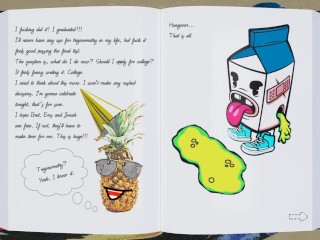 I fucking did it! I graduated!!!
I'll never have any use for trigonometry in my life, but fuck it
feels good passing the final test.
The question is, what do I do now? Should I apply for college?
It feels funny writing it. College.
I need to think about this more. I won't make any rushed
decisions. I'm gonna celebrate
tonight, that's for sure.
I hope Brat, Emy and Jonah
are free. If not, they'll have to
make time for me. This is huge!!!
Trigonometry?
Yeah, I know it.
Hungover...
That is all.